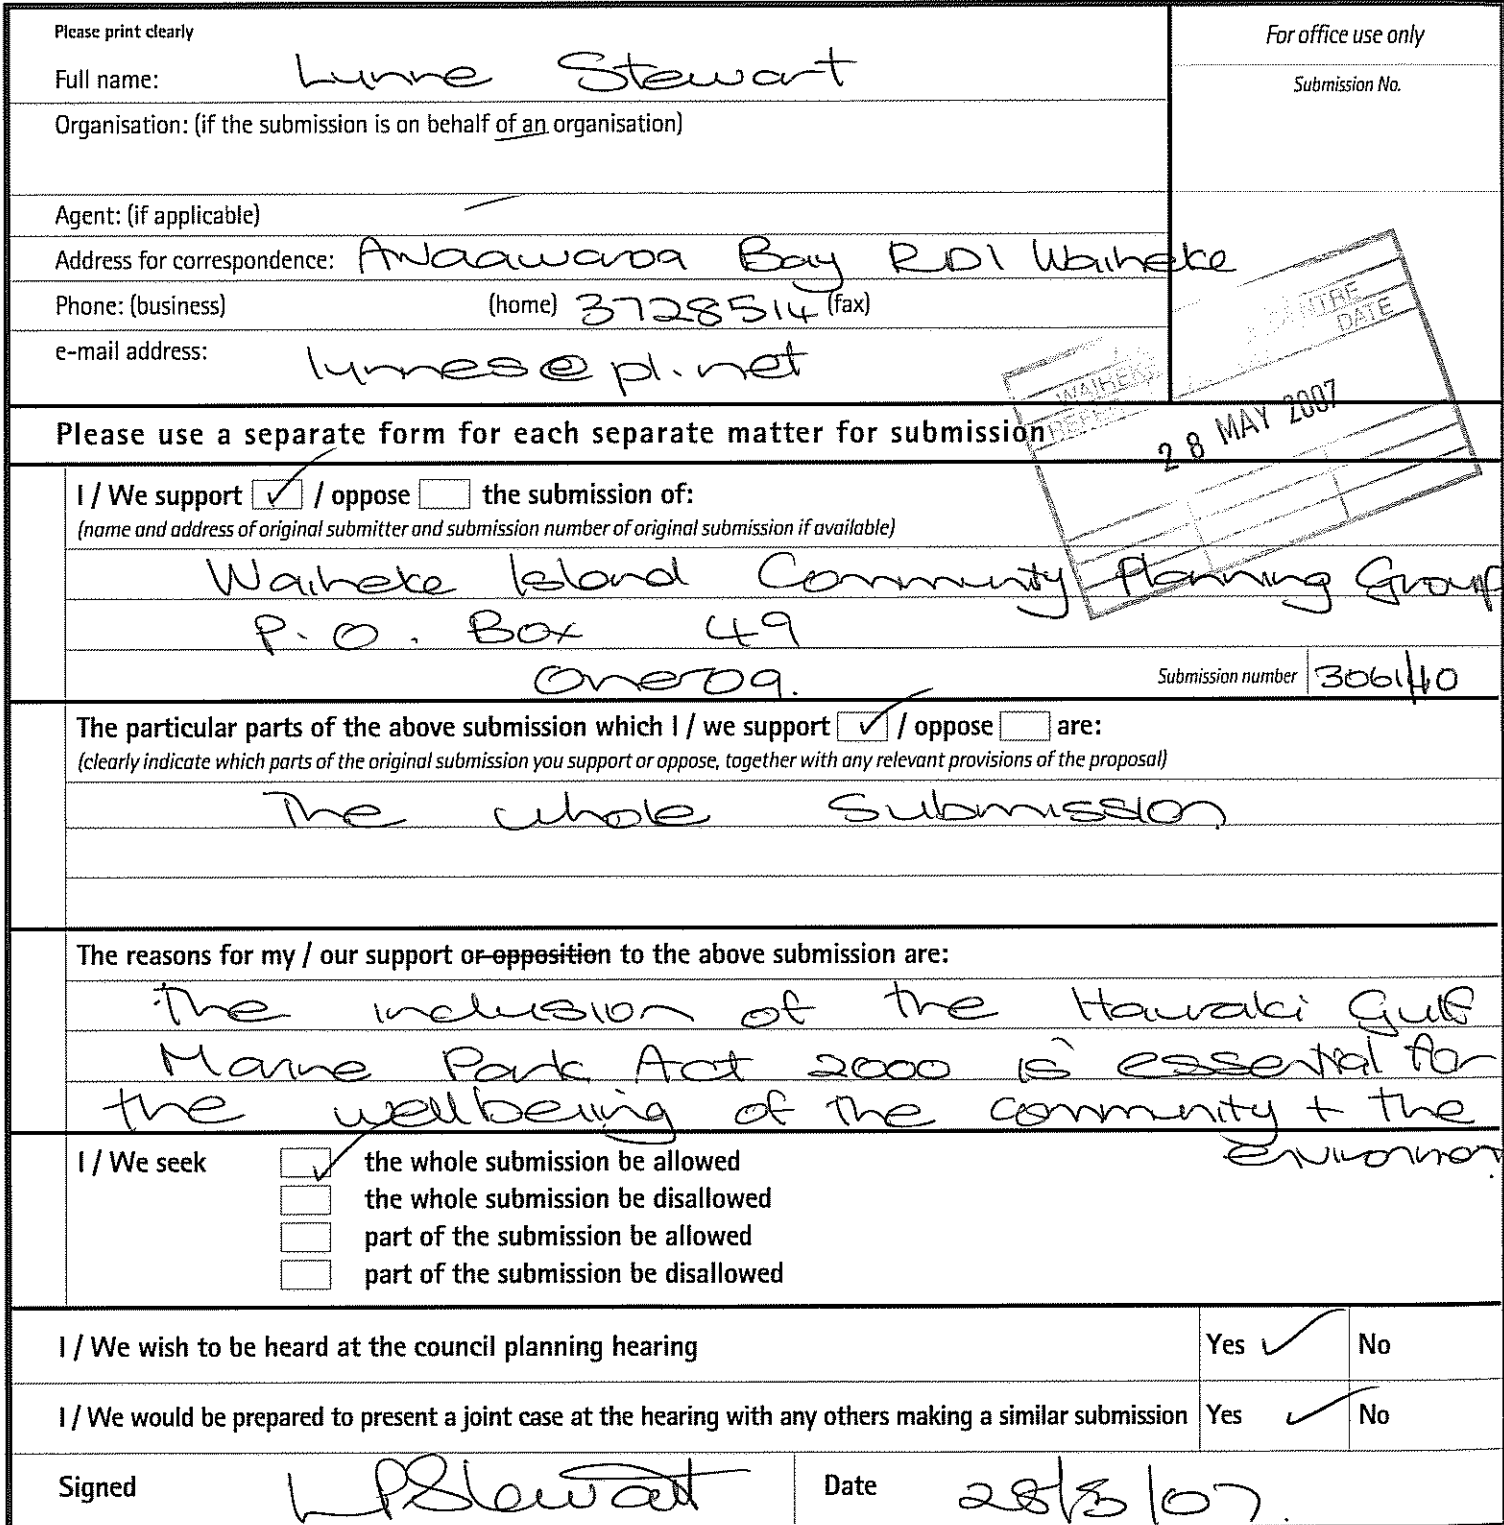 Please print clearly
For office use only
Full name: Lynne Stewart
Submission No.
Organisation: (if the submission is on behalf of an organisation)
Agent: (if applicable)
Address for correspondence: Awaawaroa Bay RD1 Waiheke
Phone: (business) (home) 3728514 (fax)
e-mail address: lynnes@pl.net
DATE
WAIHEKE
28 MAY 2007
Please use a separate form for each separate matter for submission
I / We support ✓ / oppose the submission of:
(name and address of original submitter and submission number of original submission if available)
Waiheke Island Community Planning Group
P.O. Box 49
Oneroa.
Submission number
The particular parts of the above submission which I / we support ✓ / oppose are:
(clearly indicate which parts of the original submission you support or oppose, together with any relevant provisions of the proposal)
The whole Submission
The reasons for my / our support or opposition to the above submission are:
The inclusion of the Hauraki Gulf
Marine Park Act 2000 is essential for
the wellbeing of the community + the
I / We seek ✓ the whole submission be allowed
the whole submission be disallowed
part of the submission be allowed
part of the submission be disallowed
I / We wish to be heard at the council planning hearing Yes ✓ No
I / We would be prepared to present a joint case at the hearing with any others making a similar submission Yes ✓ No
Signed LPStewart Date 28/5/07.